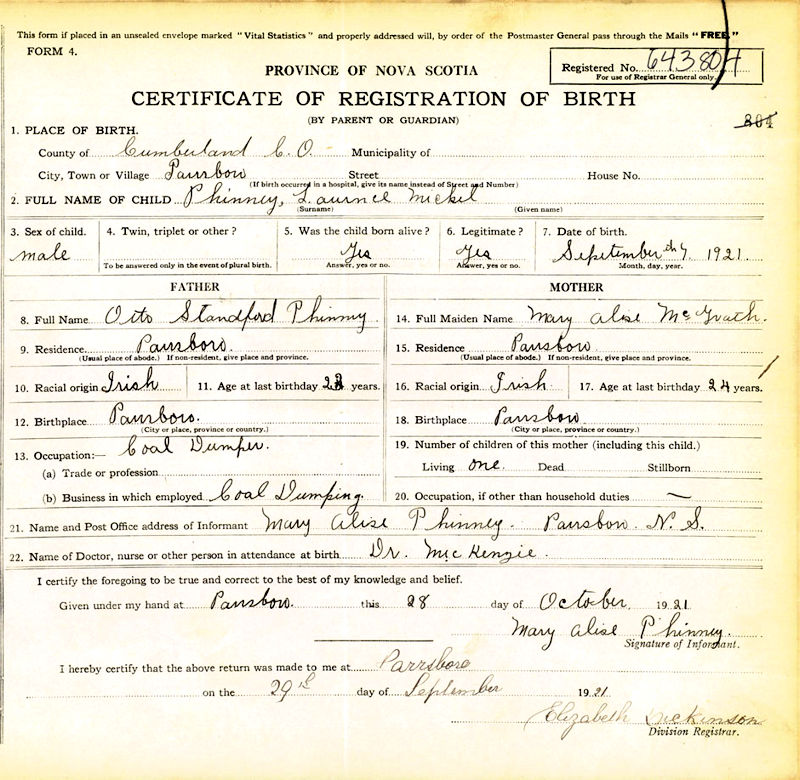 This form if placed in an unsealed envelope marked "Vital Statistics" and properly addressed will, by order of the Postmaster General pass through the Mails "FREE."
FORM 4.
Registered No. 643804
For use of Registrar General only.
PROVINCE OF NOVA SCOTIA
CERTIFICATE OF REGISTRATION OF BIRTH
(BY PARENT OR GUARDIAN)
804
1. PLACE OF BIRTH.
County of Cumberland C.O. Municipality of
City, Town or Village Parrsboro Street House No.
(If birth occurred in a hospital, give its name instead of Street and Number)
2. FULL NAME OF CHILD Phinney, Laurnce Mickel
(Surname) (Given name)
3. Sex of child. 4. Twin, triplet or other? 5. Was the child born alive? 6. Legitimate? 7. Date of birth.
male Yes Yes September th 7 1921
To be answered only in the event of plural birth. Answer, yes or no. Answer, yes or no. Month, day, year.
FATHER MOTHER
8. Full Name Otto Standford Phinney 14. Full Maiden Name Mary Alise McGrath.
9. Residence Parrsboro. 15. Residence Parrsboro
(Usual place of abode.) If non-resident, give place and province. (Usual place of abode.) If non-resident, give place and province.
10. Racial origin Irish 11. Age at last birthday years. 16. Racial origin Irish 17. Age at last birthday 24 years.
12. Birthplace Parrsboro. 18. Birthplace Parrsboro
(City or place, province or country.) (City or place, province or country.)
13. Occupation:— Coal Dumper. 19. Number of children of this mother (including this child.)
(a) Trade or profession Living one. Dead Stillborn
(b) Business in which employed Coal Dumping. 20. Occupation, if other than household duties —
21. Name and Post Office address of Informant Mary Alise Phinney. Parrsboro N.S.
22. Name of Doctor, nurse or other person in attendance at birth Dr. McKenzie.
I certify the foregoing to be true and correct to the best of my knowledge and belief.
Given under my hand at Parrsboro. this 28 day of October 1921
Mary Alise Phinney.
Signature of Informant.
I hereby certify that the above return was made to me at Parrsboro
on the 29th day of September 1921
Elizabeth Dickinson
Division Registrar.